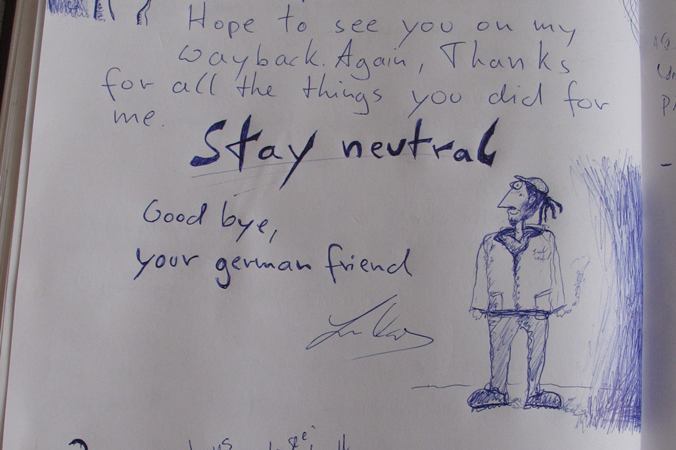 Hope to see you on my
wayback. Again, Thanks
for all the things you did for
me.
Stay neutral
Good bye,
your german friend
Lukas